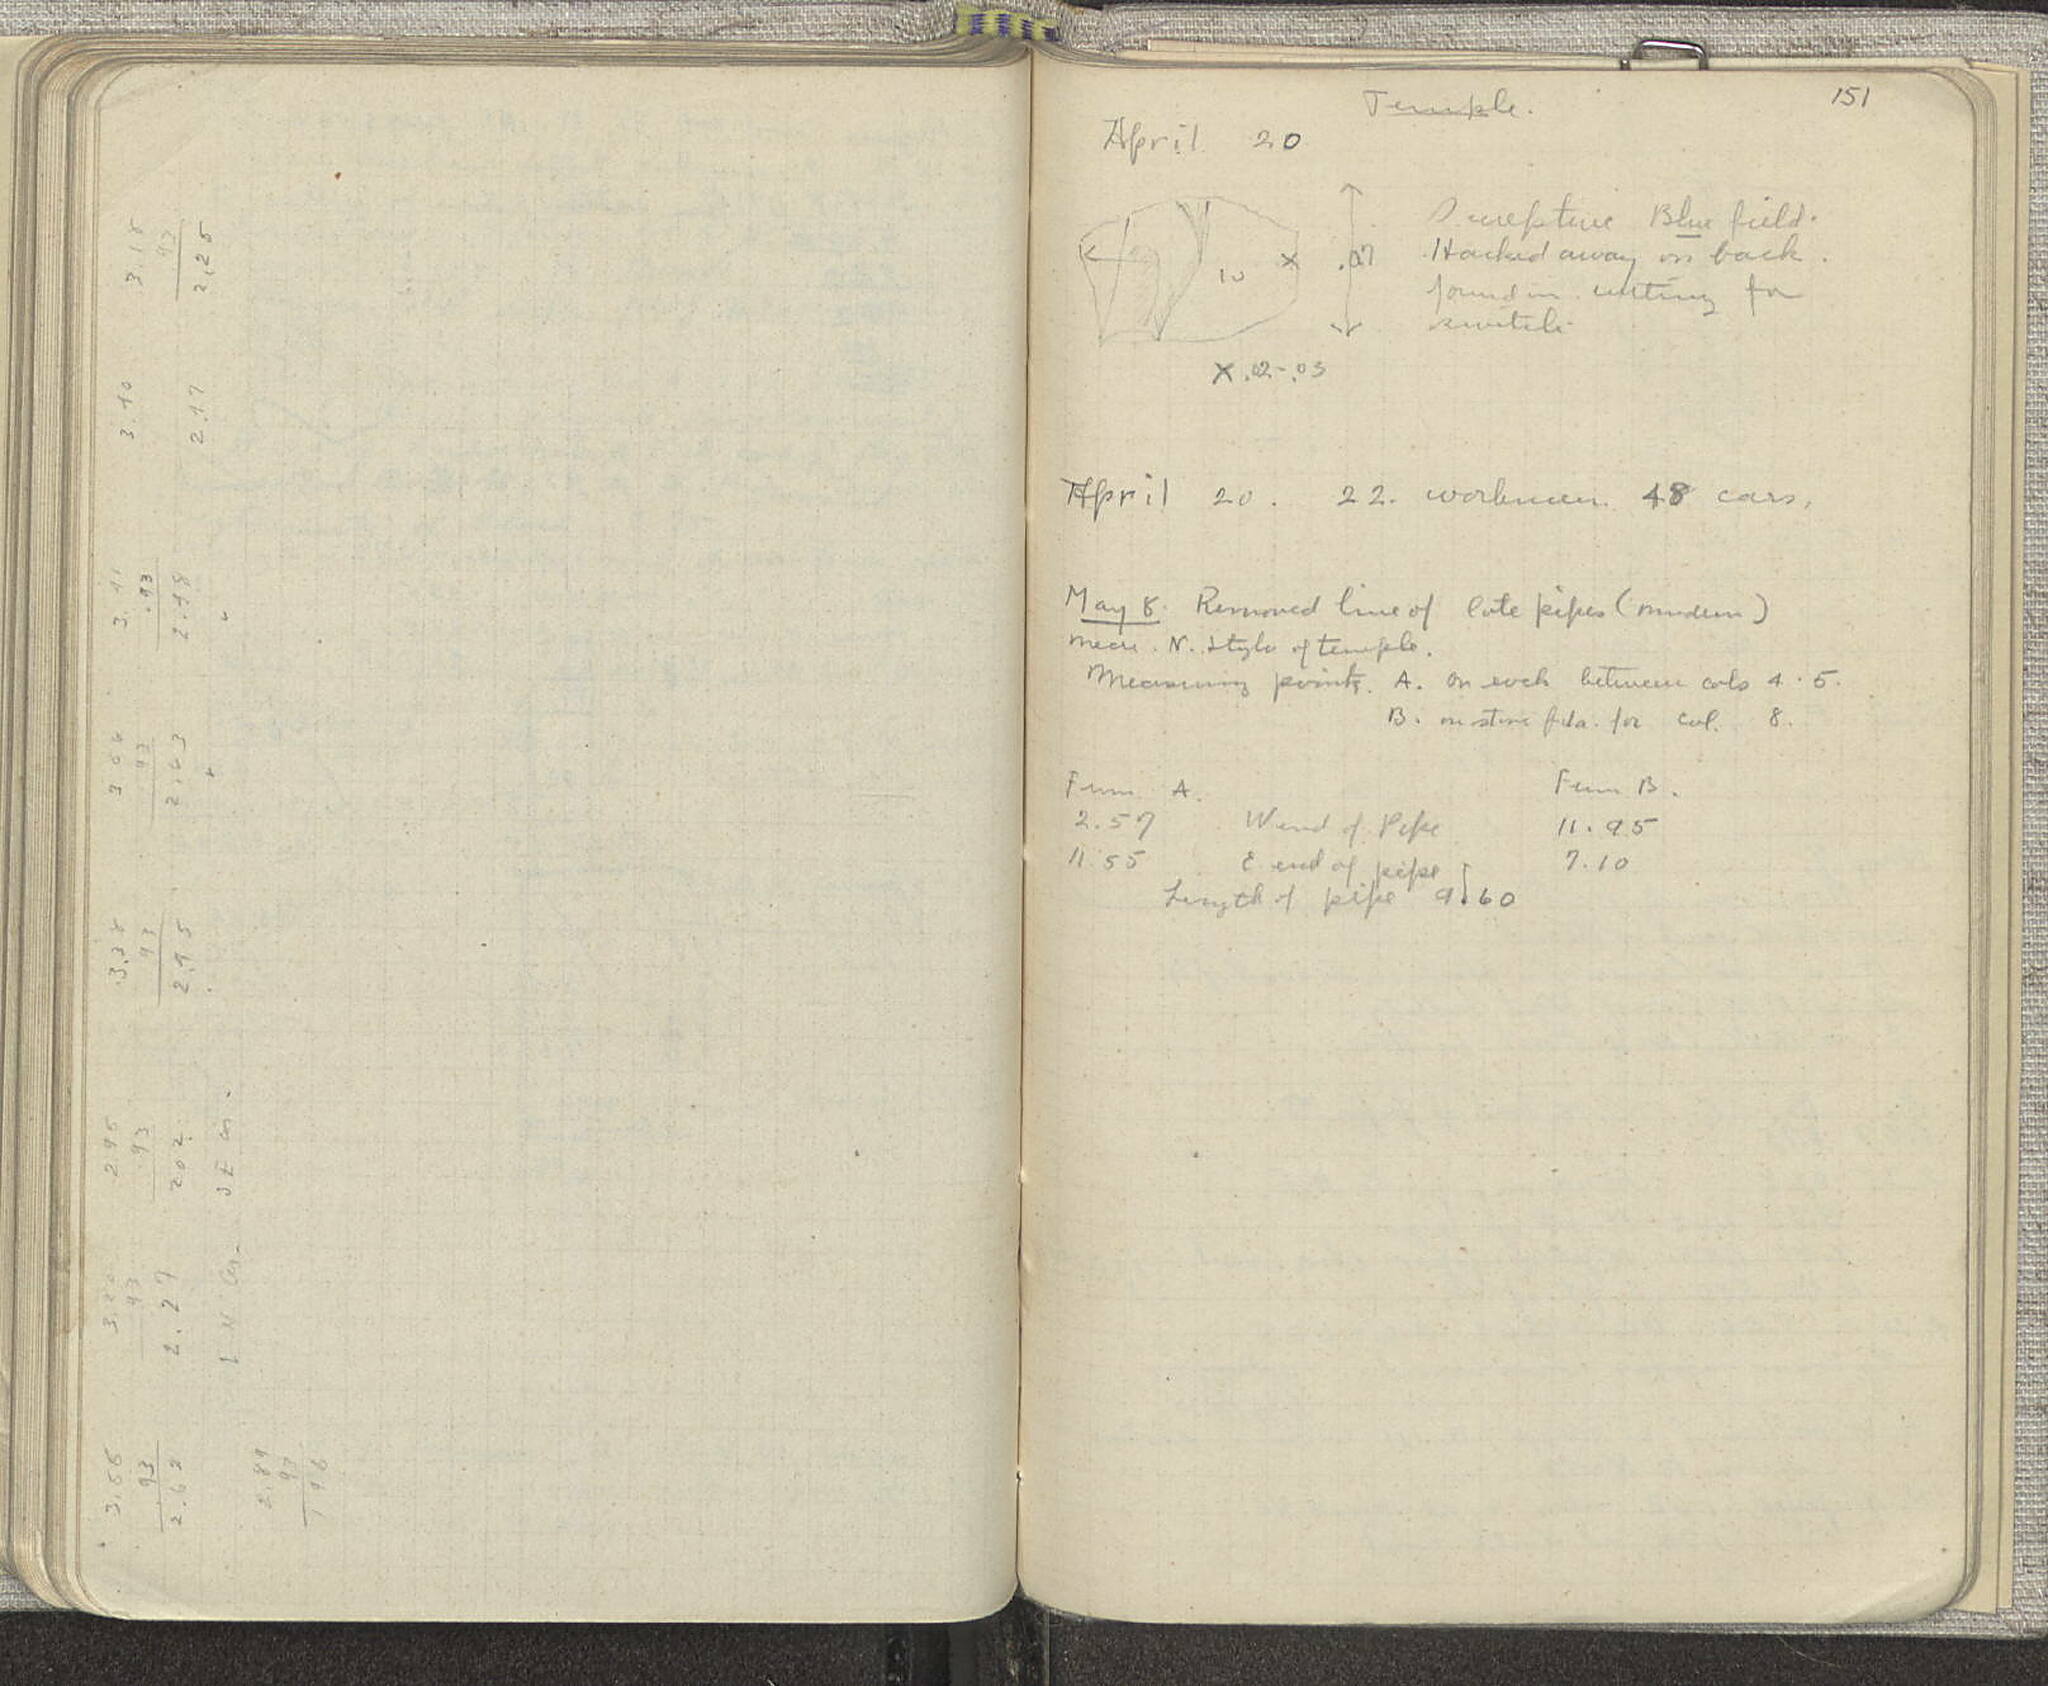 3.18
93
2.25
3.10
2.17
3.11
.93
2.18
3.06
93
2.13
3.38
93
2.45
2.95
.93
2 02
SE Cor.
3.20
93
2.27
N Cor.
3.55
93
2.62
2.89
93
1 96
151
Temple.
April 20
10
.07
X .02-.03
Blue field.
Hacked away on back.
found in cutting for
April 20. 22. workmen. 48 cars.
May 8. Removed line of late pipes (modern)
near N. Stylo of temple.
Measuring points. A. on between cols 4.5.
B. on stone fda. for col. 8.
From A. From B.
2.57 W end of Pipe 11.95
11.55 E end of pipe 7.10
Length of pipe 9.60